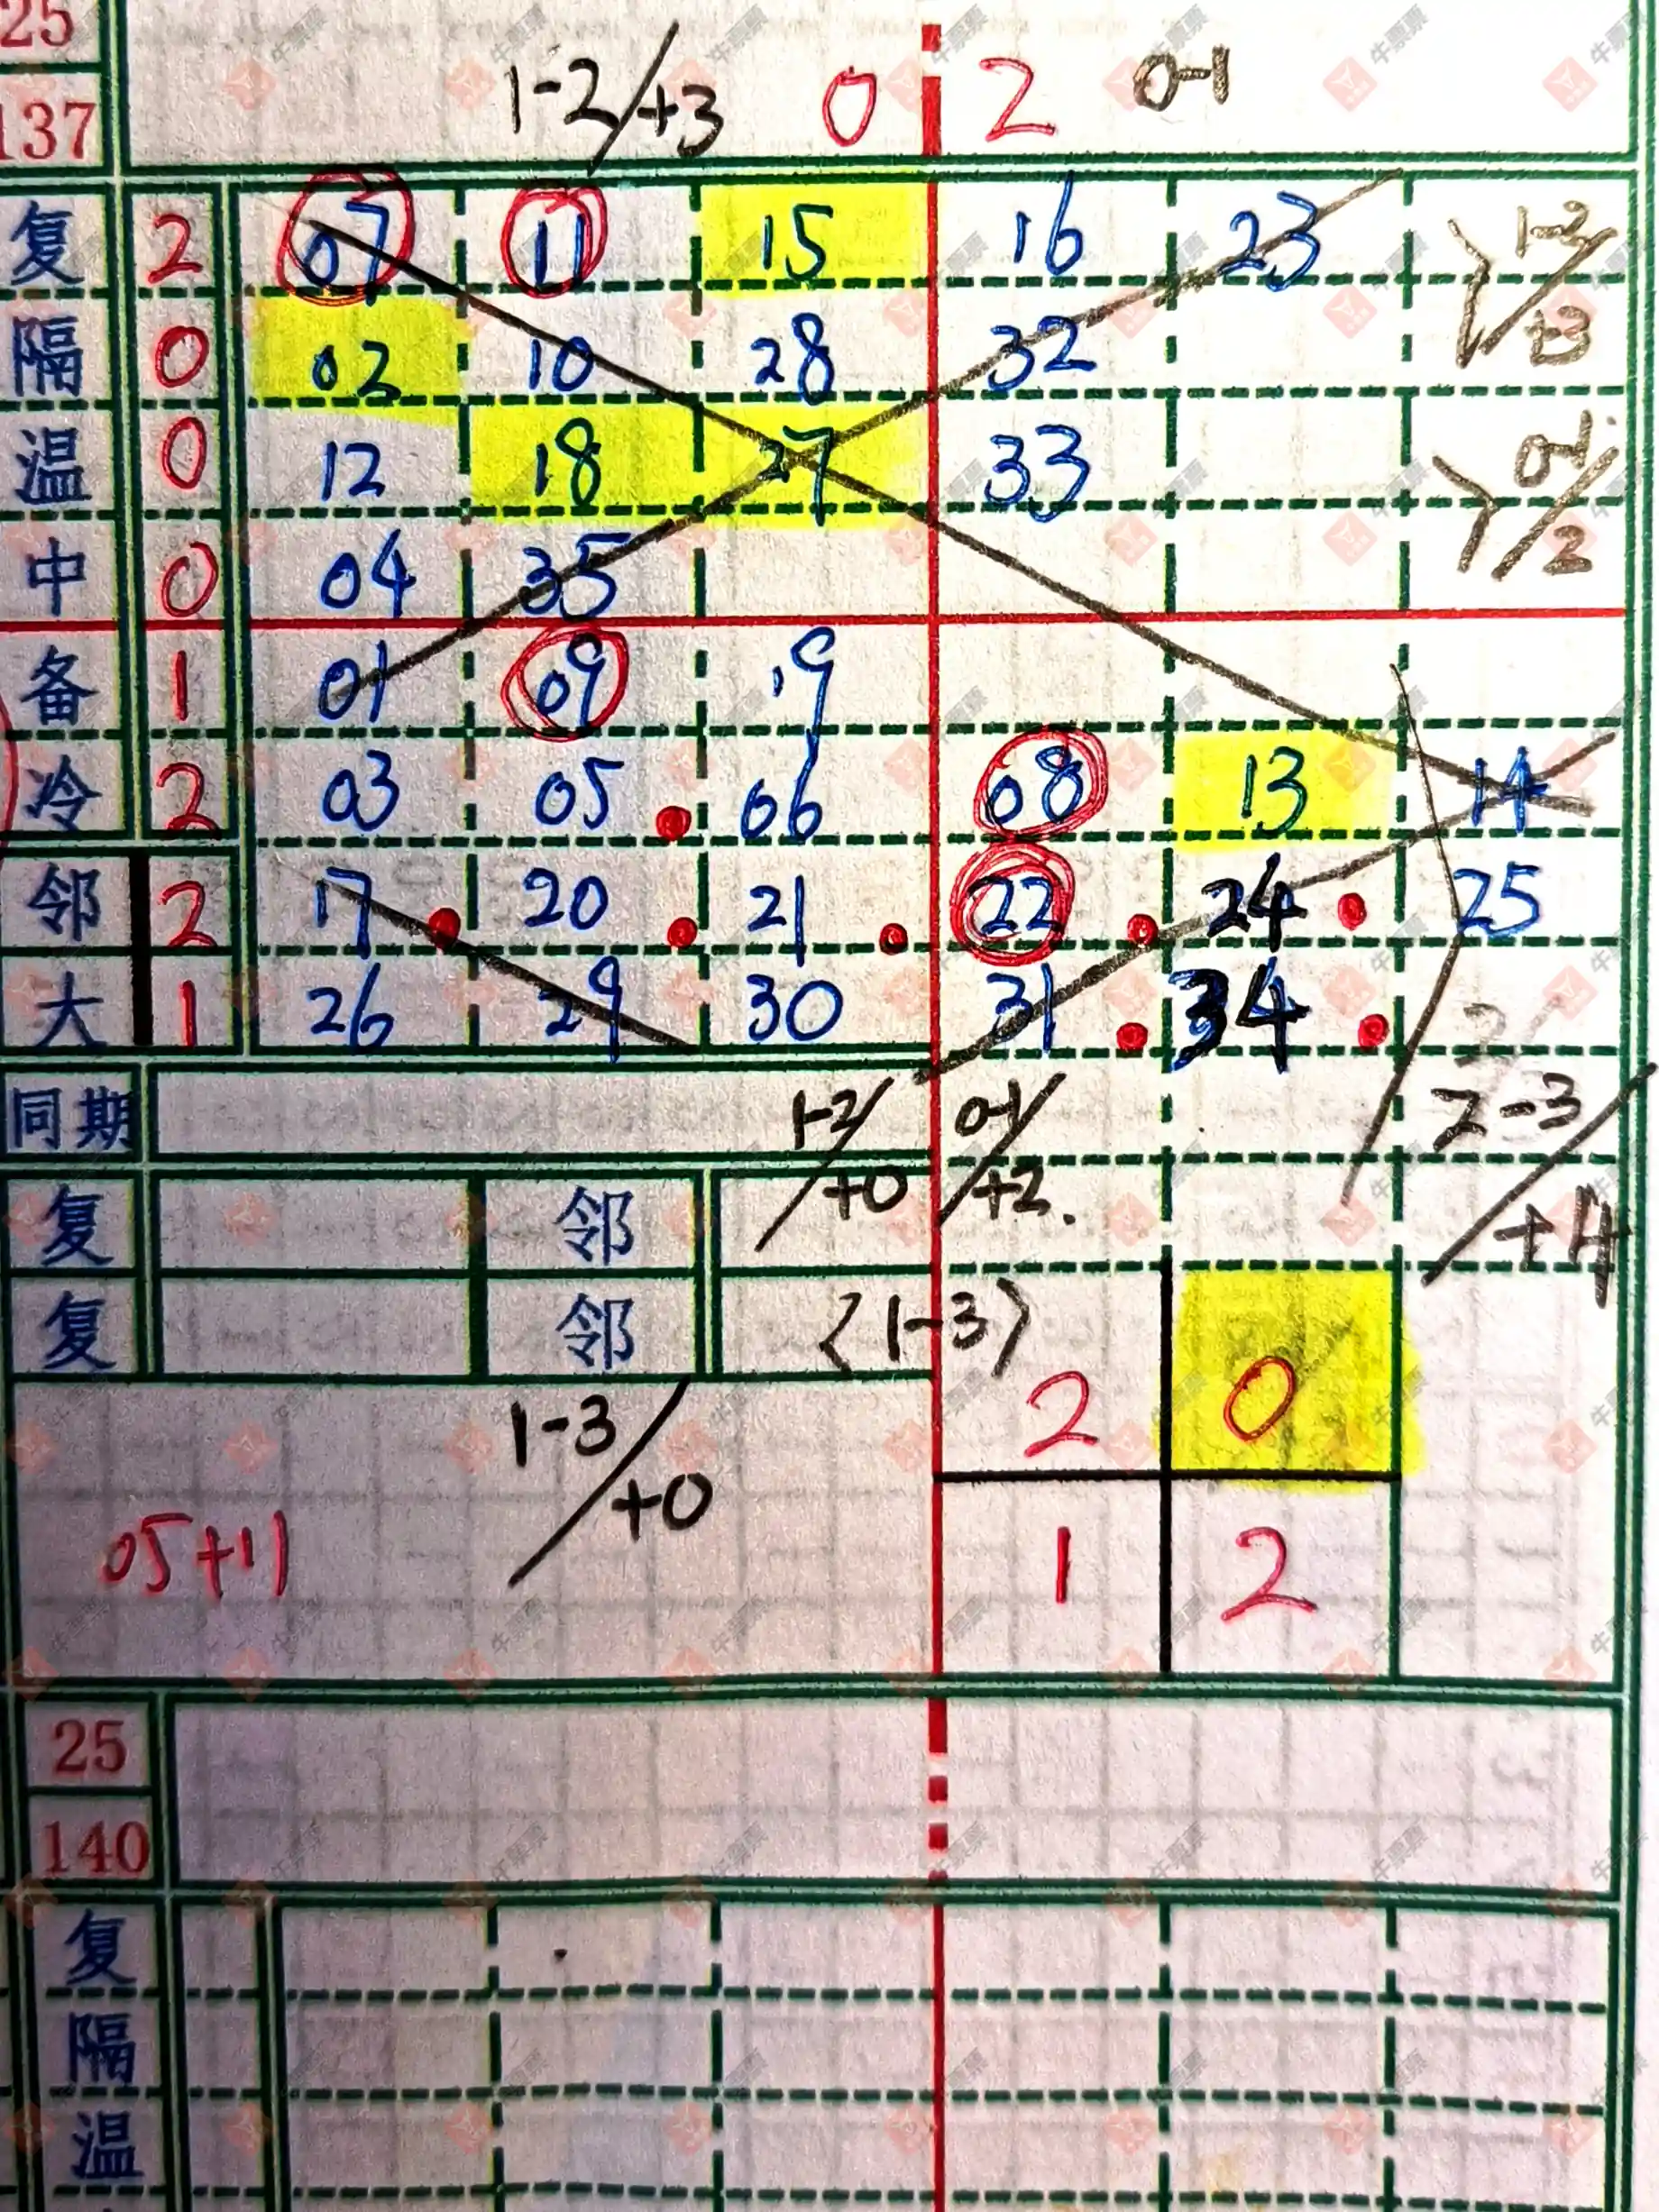 25
1-2/+3 0 2 0-1
137
复 2 07 11 15 16 23 1-2/+3
隔 0 02 10 28 32
温 0 12 18 27 33 0-1/2
中 0 04 35
备 1 01 09 19
冷 2 03 05 06 08 13 14
邻 2 17 20 21 22 24 25
大 1 26 29 30 31 34
同期 1-2/+0 0-1/+2. 2-3/+4
复 邻
复 邻 〈1-3〉
1-3/+0 2 0
05+11 1 2
25
140
复
隔
温